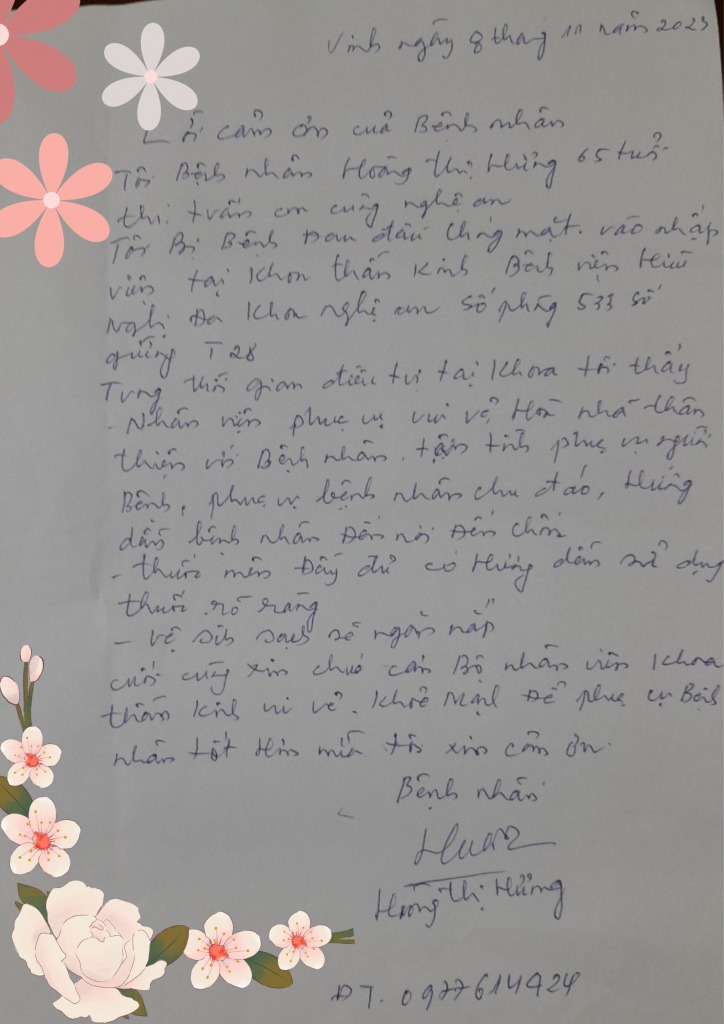 Vinh ngày 8 tháng 11 năm 2023
Lời cảm ơn của Bệnh nhân
Tôi Bệnh nhân Hoàng Thị Hường 65 tuổi
thị trấn con cuông nghệ an
Tôi Bị Bệnh Đau đầu chóng mặt. vào nhập
viện tại Khoa thần Kinh Bệnh viện Hữu
Nghị Đa Khoa nghệ an số phòng 533 số
giường T28
Trong thời gian điều trị tại Khoa tôi thấy
- Nhân viện phục vụ vui vẻ Hoà nhã thân
thiện với Bệnh nhân. tận tình phục vụ người
Bệnh, phục vụ bệnh nhân chu đáo, Hướng
dẫn bệnh nhân Đến nơi Đến chốn
- thuốc men Đầy đủ có Hướng dẫn sử dụng
thuốc rõ ràng
- Vệ sinh sạch sẽ ngăn nắp
cuối cùng xin chúc cán Bộ nhân viên Khoa
thần Kinh vui vẻ. Khoẻ Mạnh Để phục vụ Bệnh
nhân tốt Hơn nữa tôi xin cảm ơn.
Bệnh nhân
Hoàng Thị Hường
ĐT. 0977614424